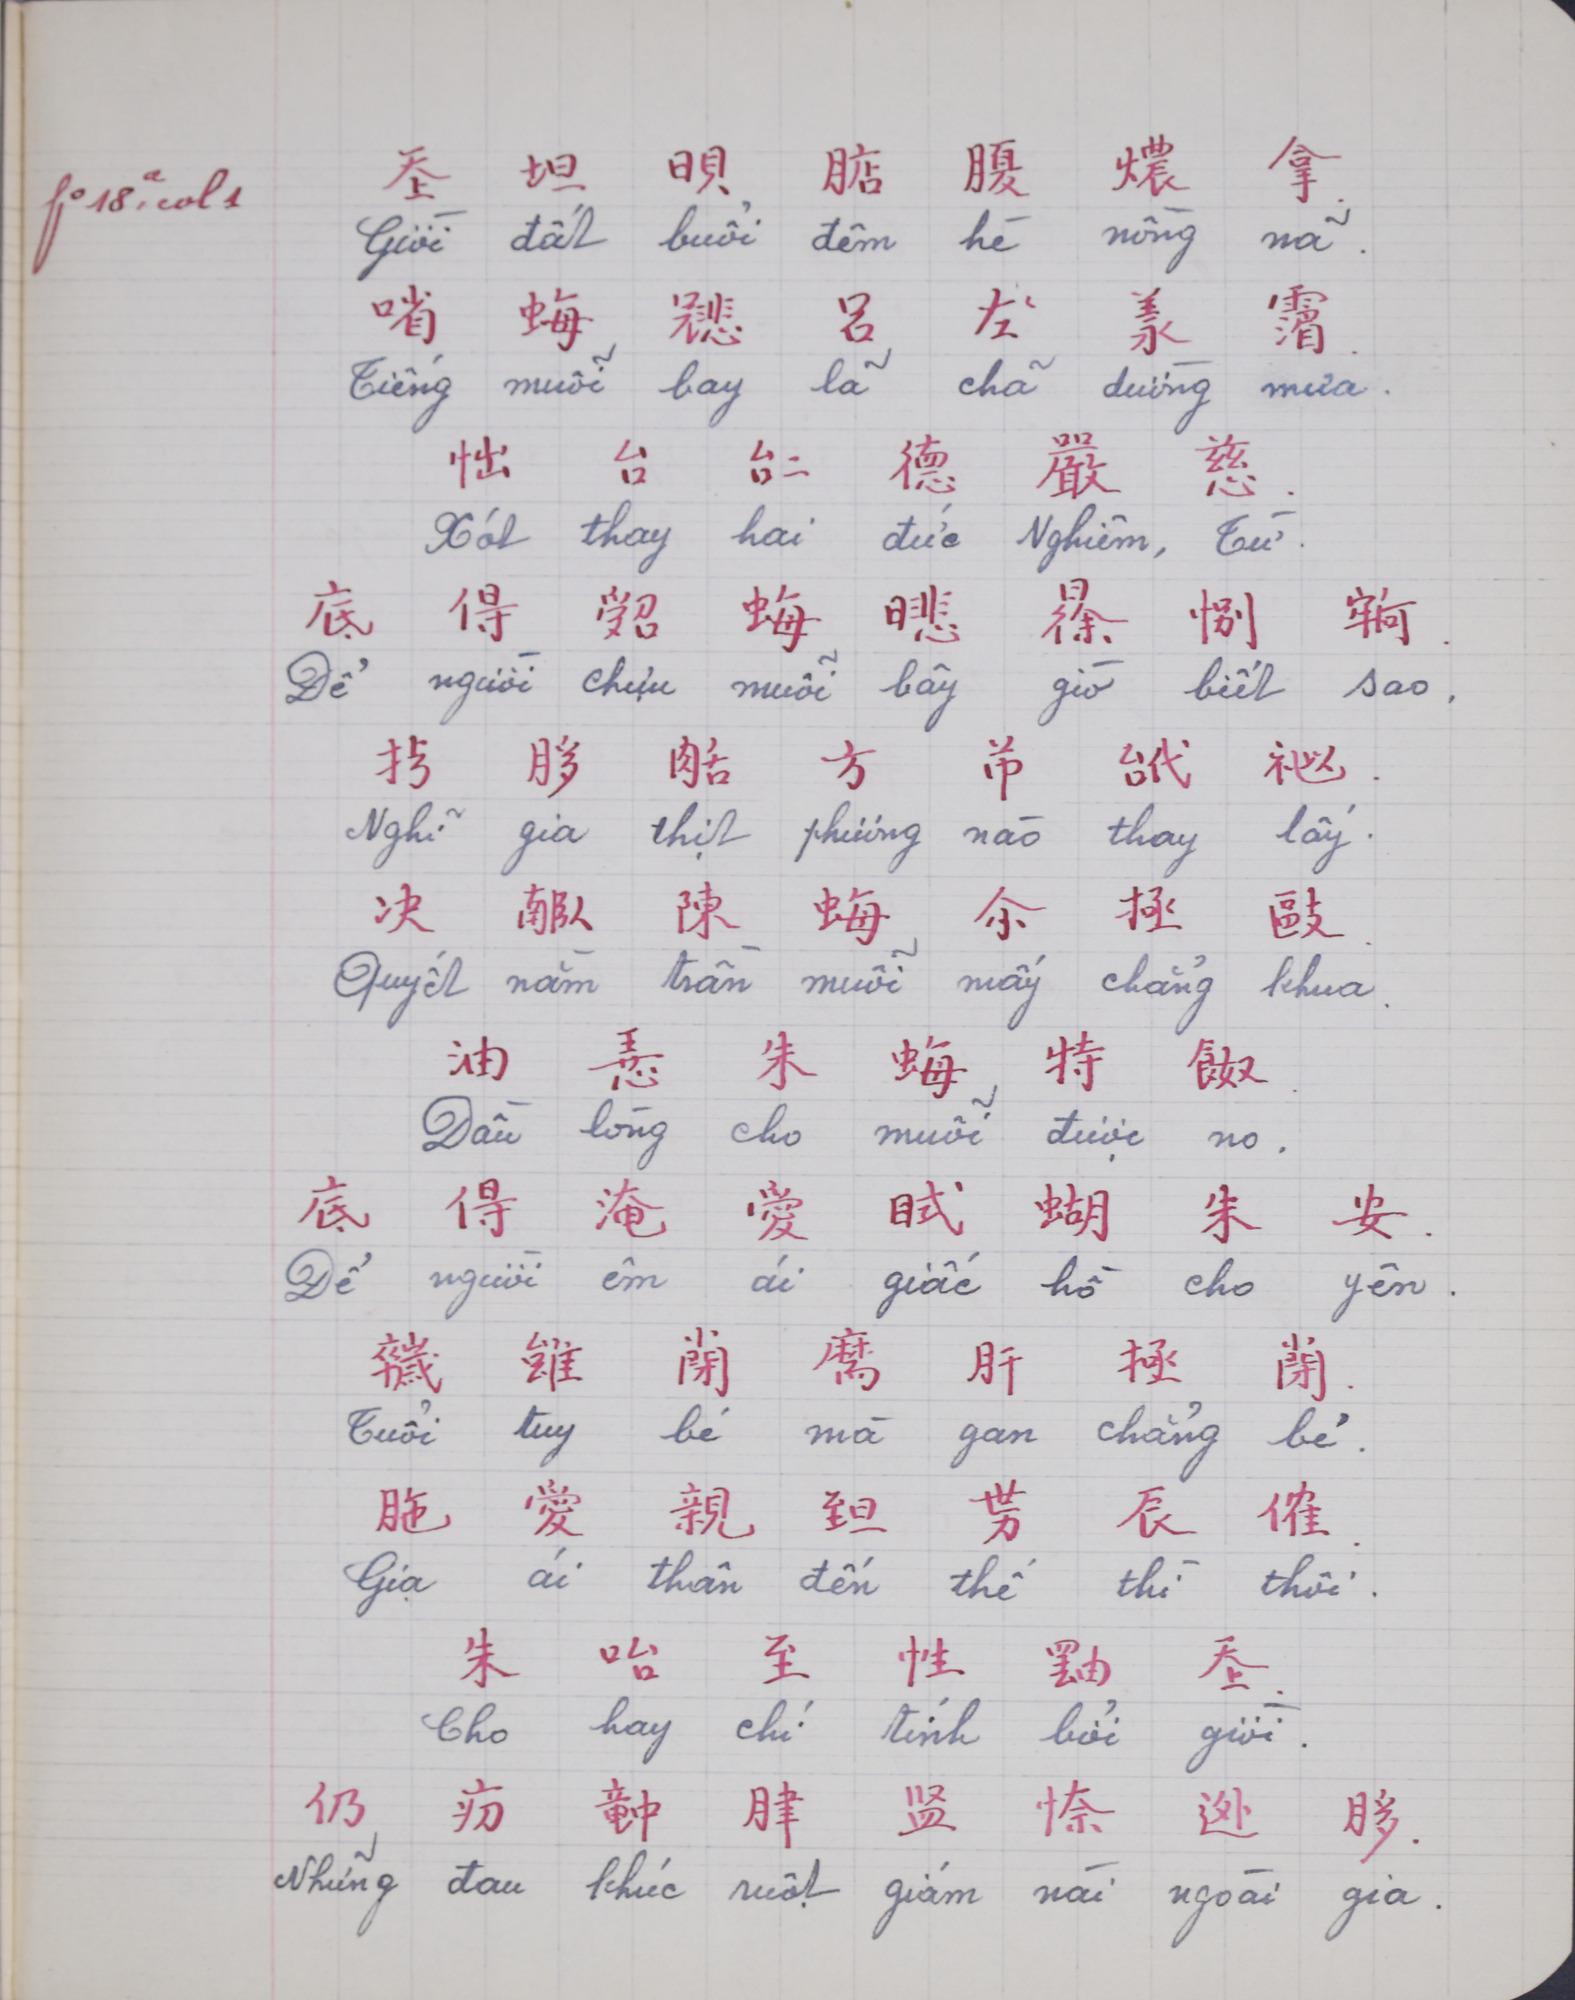 fº 18.a col 1
𡗶 坦 𣇜 𣈘 𦓅 燶 拿.
Giời đất buổi đêm hè nồng nã.
㗂 𧋟 𢒎 呂 㡯 羕 𩄎.
Tiếng muỗi bay lã chã dường mưa.
怞 台 𠄩 德 嚴 慈.
Xót thay hai đức Nghiêm, Từ.
底 㝵 𠹾 𧋟 𣊾 𣇞 別 𡫡.
Để người chịu muỗi bây giờ biết sao.
𢪀 𦠄 𦧘 方 芇 𠊝 𥙩.
Nghĩ gia thịt phương nào thay lấy.
决 𦣰 陳 𧋟 尒 拯 敺.
Quyết nằm trần muỗi mấy chẳng khua.
油 𢚸 朱 𧋟 特 𩛂.
Dầu lòng cho muỗi được no.
底 㝵 淹 愛 𥅞 蝴 朱 安.
Để người êm ái giấc hồ cho yên.
𢆫 雖 𡮣 𦓡 肝 拯 𡮣.
Tuổi tuy bé mà gan chẳng bé.
𦙶 愛 親 𦤾 𠁀 辰 傕.
Giạ ái thân đến thế thì thôi.
朱 咍 至 性 𤳸 𡗶.
Cho hay chí tính bởi giời.
仍 𤴬 𧿭 𦛌 监 㮈 外 𦠄.
Những đau khúc ruột giám nài ngoài gia.